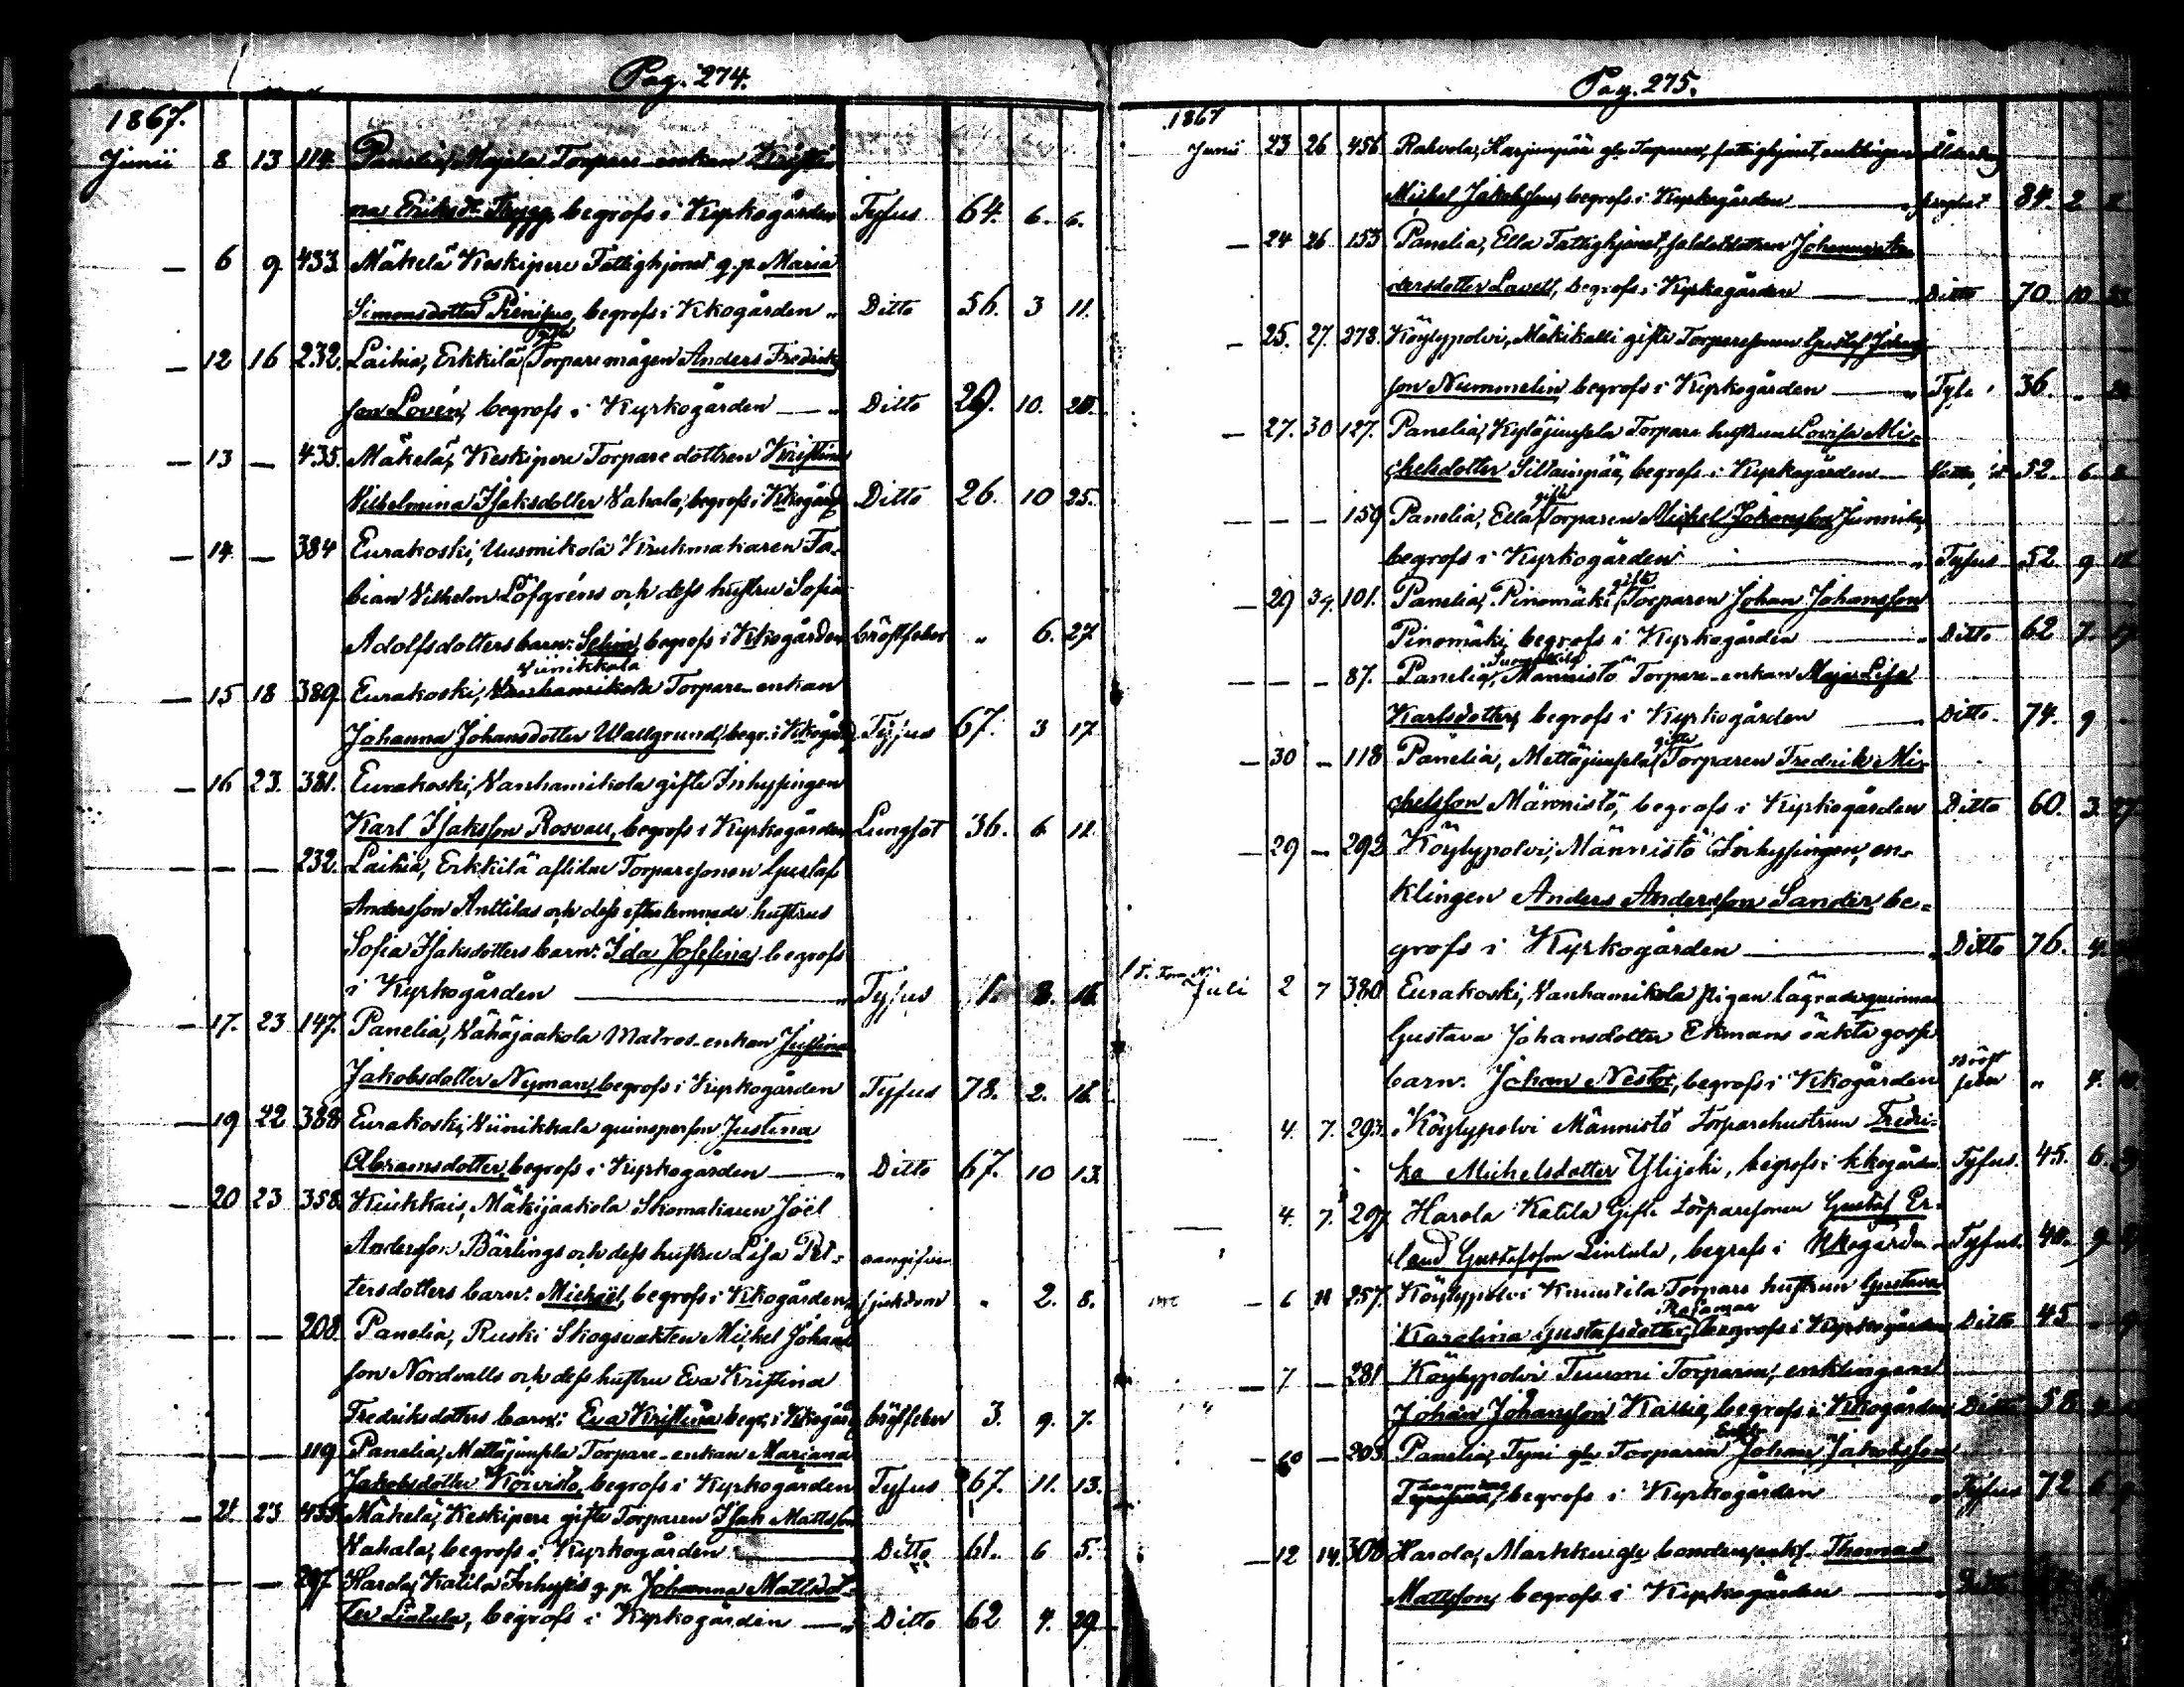 Pag. 274.
1867.
Junii 8 13 114. Panelia, Majala Torpare-enkan Kristi-
na Eriksd:r Trygg, begrofs i Kyrkogården Tyfus 64. 6. 6.
— 6 9. 433. Mäkelä Keskipere Fattighjonet q.p. Maria
Simonsdotter, begrofs i Kkogården „ Ditto 56. 3 11.
gifte
— 12 16 232. Laihia, Erkkilä Torparemågen Anders Fredriks
son Lovén, begrofs i Kyrkogården — „ Ditto 29. 10. 20.
— 13 — 435. Mäkelä, Keskipere Torpare dottren Kristina
Vilhelmina Isaksdotter Vahala, begrofs i Kkogård Ditto 26. 10 25.
— 14. — 384 Eurakoski, Uusmikola Krukmakaren Fa-
bian Vilhelm Löfgréns och dess hustru Sofia
Adolfsdotters barn: Selim, begrofs i Kkogården bröstfeber „ 6. 27
Viinikkala
— 15 18 389. Eurakoski, Vanhamikola Torpare-enkan
Johanna Johansdotter Wallgrund, begr. i Kkogård Tyfus 67. 3 17
— 16 23. 381. Eurakoski, Vanhamikola gifte Inhysingen
Karl Isaksson Rosvall, begrofs i Kyrkogården Lungsot 36. 6 11.
— — — 232. Laihia, Erkkilä aflidne Torparesonen Gustaf
Andersson Anttilas och dess efterlemnade hustrus
Sofia Isaksdotters barn: Ida Josefina begrofs
i Kyrkogården — „ Tyfus 1. 8. 16.
— 17. 23 147. Panelia, Vähäjaakola Matros-enkan Justina
Jakobsdotter Nyman, begrofs i Kyrkogården Tyfus 78. 2. 16.
— 19 22 388 Eurakoski, Viinikkala quinsperson Justina
Abramsdotter, begrofs i Kyrkogården — „ Ditto 67. 10 13.
— 20 23 358. Kiukkais, Mäkijaakola Skomakaren Joël
Andersson Bärlings och dess hustru Lisa Pet-
tersdotters barn: Michel, begrofs i Kkogården sjukdom „ 2. 8.
— — — 208. Panelia, Ruski Skogsvakten Michel Johans
son Nordvalls och dess hustru Eva Kristina
Fredriksdotters barn: Eva Kristina begr. i Kkogård bröstfeber 3. 9. 7.
— — — 119 Panelia, Mettäjunsela Torpare-enkan Mariana
Jakobsdotter Koivisto, begrofs i Kyrkogården Tyfus 67. 11. 13.
— 21 23 435. Mäkelä, Keskipere gifte Torparen Isak Mattsson
Vahala, begrofs i Kyrkogården — Ditto 61. 6 5.
— — — 297 Harola, Katila Inhyses q.p. Johanna Mattsdot-
ter Lintula, begrofs i Kyrkogården — „ Ditto 62 4. 29
Pag. 275.
1867
Junii 23 26 456 Rahvola, Harjunpää gle Torparen, fattighjonet, enklingen Ålderdoms
Michel Jakobsson, begrofs i Kyrkogården — „ 84. 2
— 24 26 153 Panelia, Ella Fattighjonet, Johanna An-
dersdotter Lavell, begrofs i Kyrkogården — Ditto 70. 10
— 25. 27. 278. Köylypolvi, Mäkikalli gifte Torparesonen Gustaf Johans
son Nummelin, begrofs i Kyrkogården — „ 36. „
— 27. 30 127. Panelia, Kyläjunsela Torpare hustrun Lovisa Mi-
chelsdotter Siltainpää, begrofs i Kyrkogården — 52. 6.
gifte
— — — 159. Panelia, Ella Torparen Michel Johansson Junnila,
begrofs i Kyrkogården — „ Tyfus 52 9
gifte
— 29 101. Panelia, Pinomäki Torparen Johan Johansson
Pinomäki, begrofs i Kyrkogården — „ Ditto 62 7. 17
— — — 87. Panelia, Männistö Torpare-enkan Maja Lisa
Karlsdotter, begrofs i Kyrkogården — „ Ditto. 74. 9
gifte
— 30 — 118 Panelia, Mettäjunsela Torparen Fredrik Mi-
chelsson Männistö, begrofs i Kyrkogården Ditto 60. 3. 27
— 29 — 292 Köylypolvi, Männistö Inhysingen, en-
klingen Anders Andersson Sander be-
grofs i Kyrkogården — „ Ditto 76. 4.
Juli 2 7 380 Eurakoski, Vanhamikola pigan lägrade quinnan
Gustava Johansdotter Ekmans oäkta gosse
barn: Johan Nestor, begrofs i Kkogården „ 4.
— 4. 7. 293. Köylypolvi Männistö Torparehustrun Fredri-
ka Michelsdotter Ylijoki, begrofs i kkogården Tyfus. 45. 6.
— 4. 7. 297. Harola Katila Gifte torparesonen Gustaf Er-
land Gustafsson Lintula, begrofs i Kkogården Tyfus. 40. 9.
— 6 257. Köylypolvi Knuutila Torpare hustrun Gustava
Karolina Gustafsdotter, begrofs i Kyrkogården Ditto 45
— 7 — 281 Köylypolvi Tuuoni Torparen, enklingen
Johan Johansson begrofs i Kkogården Ditto 58
Enkl.
— 10 — 203. Panelia, Tyni gle Torparen Johan Jakobsson
begrofs i Kyrkogården „ Tyfus 72 6
— 12 14. 308 Harola, Markku gle Thomas
Mattsson, begrofs i Kyrkogården —